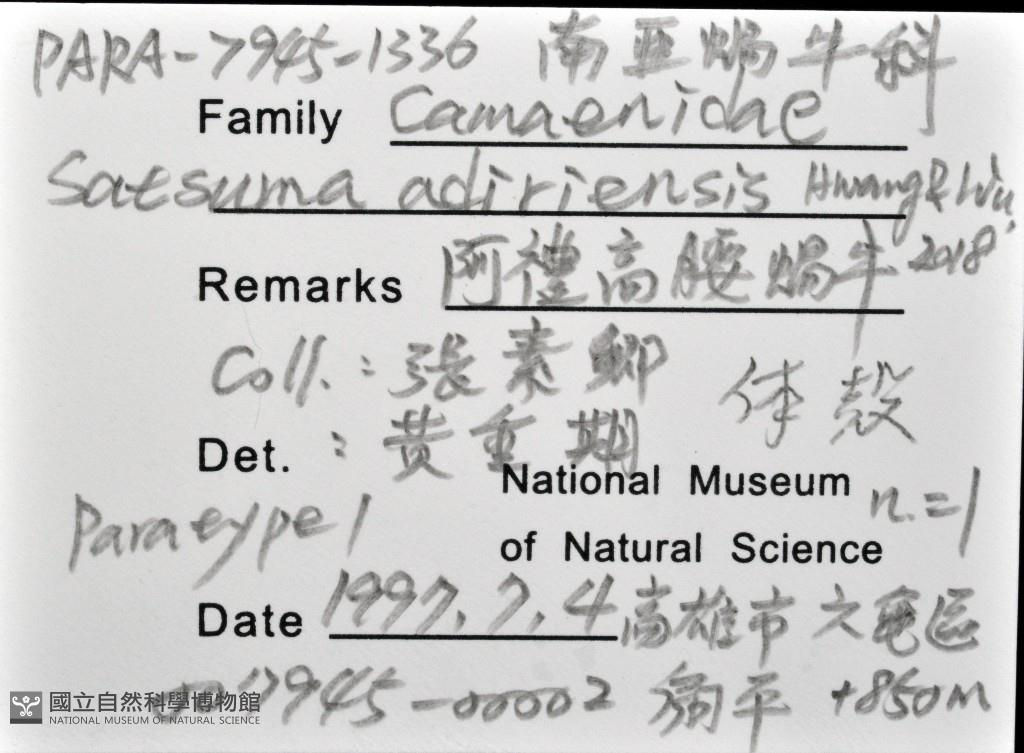 PARA-7945-1336 南亚蝸牛科
Family Camaenidae
Satsuma adiriensis Hwang & Wu,
2018
Remarks 阿禮高腰蝸牛
Coll.: 張素卿 体殼
Det.: 黄重期
National Museum n.=1
Paratype 1
of Natural Science
Date 1997.7.4 高雄市 六龜區
7945-00002 扇平 +850m
國立自然科學博物館
NATIONAL MUSEUM OF NATURAL SCIENCE